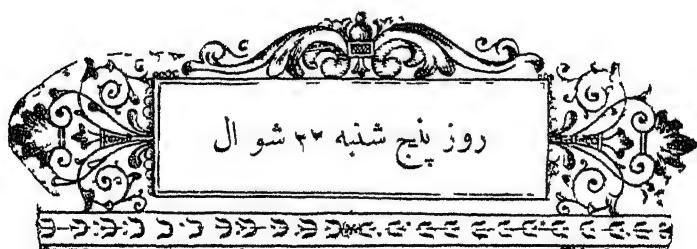 روز پنج شنبه ۲۳ شوال